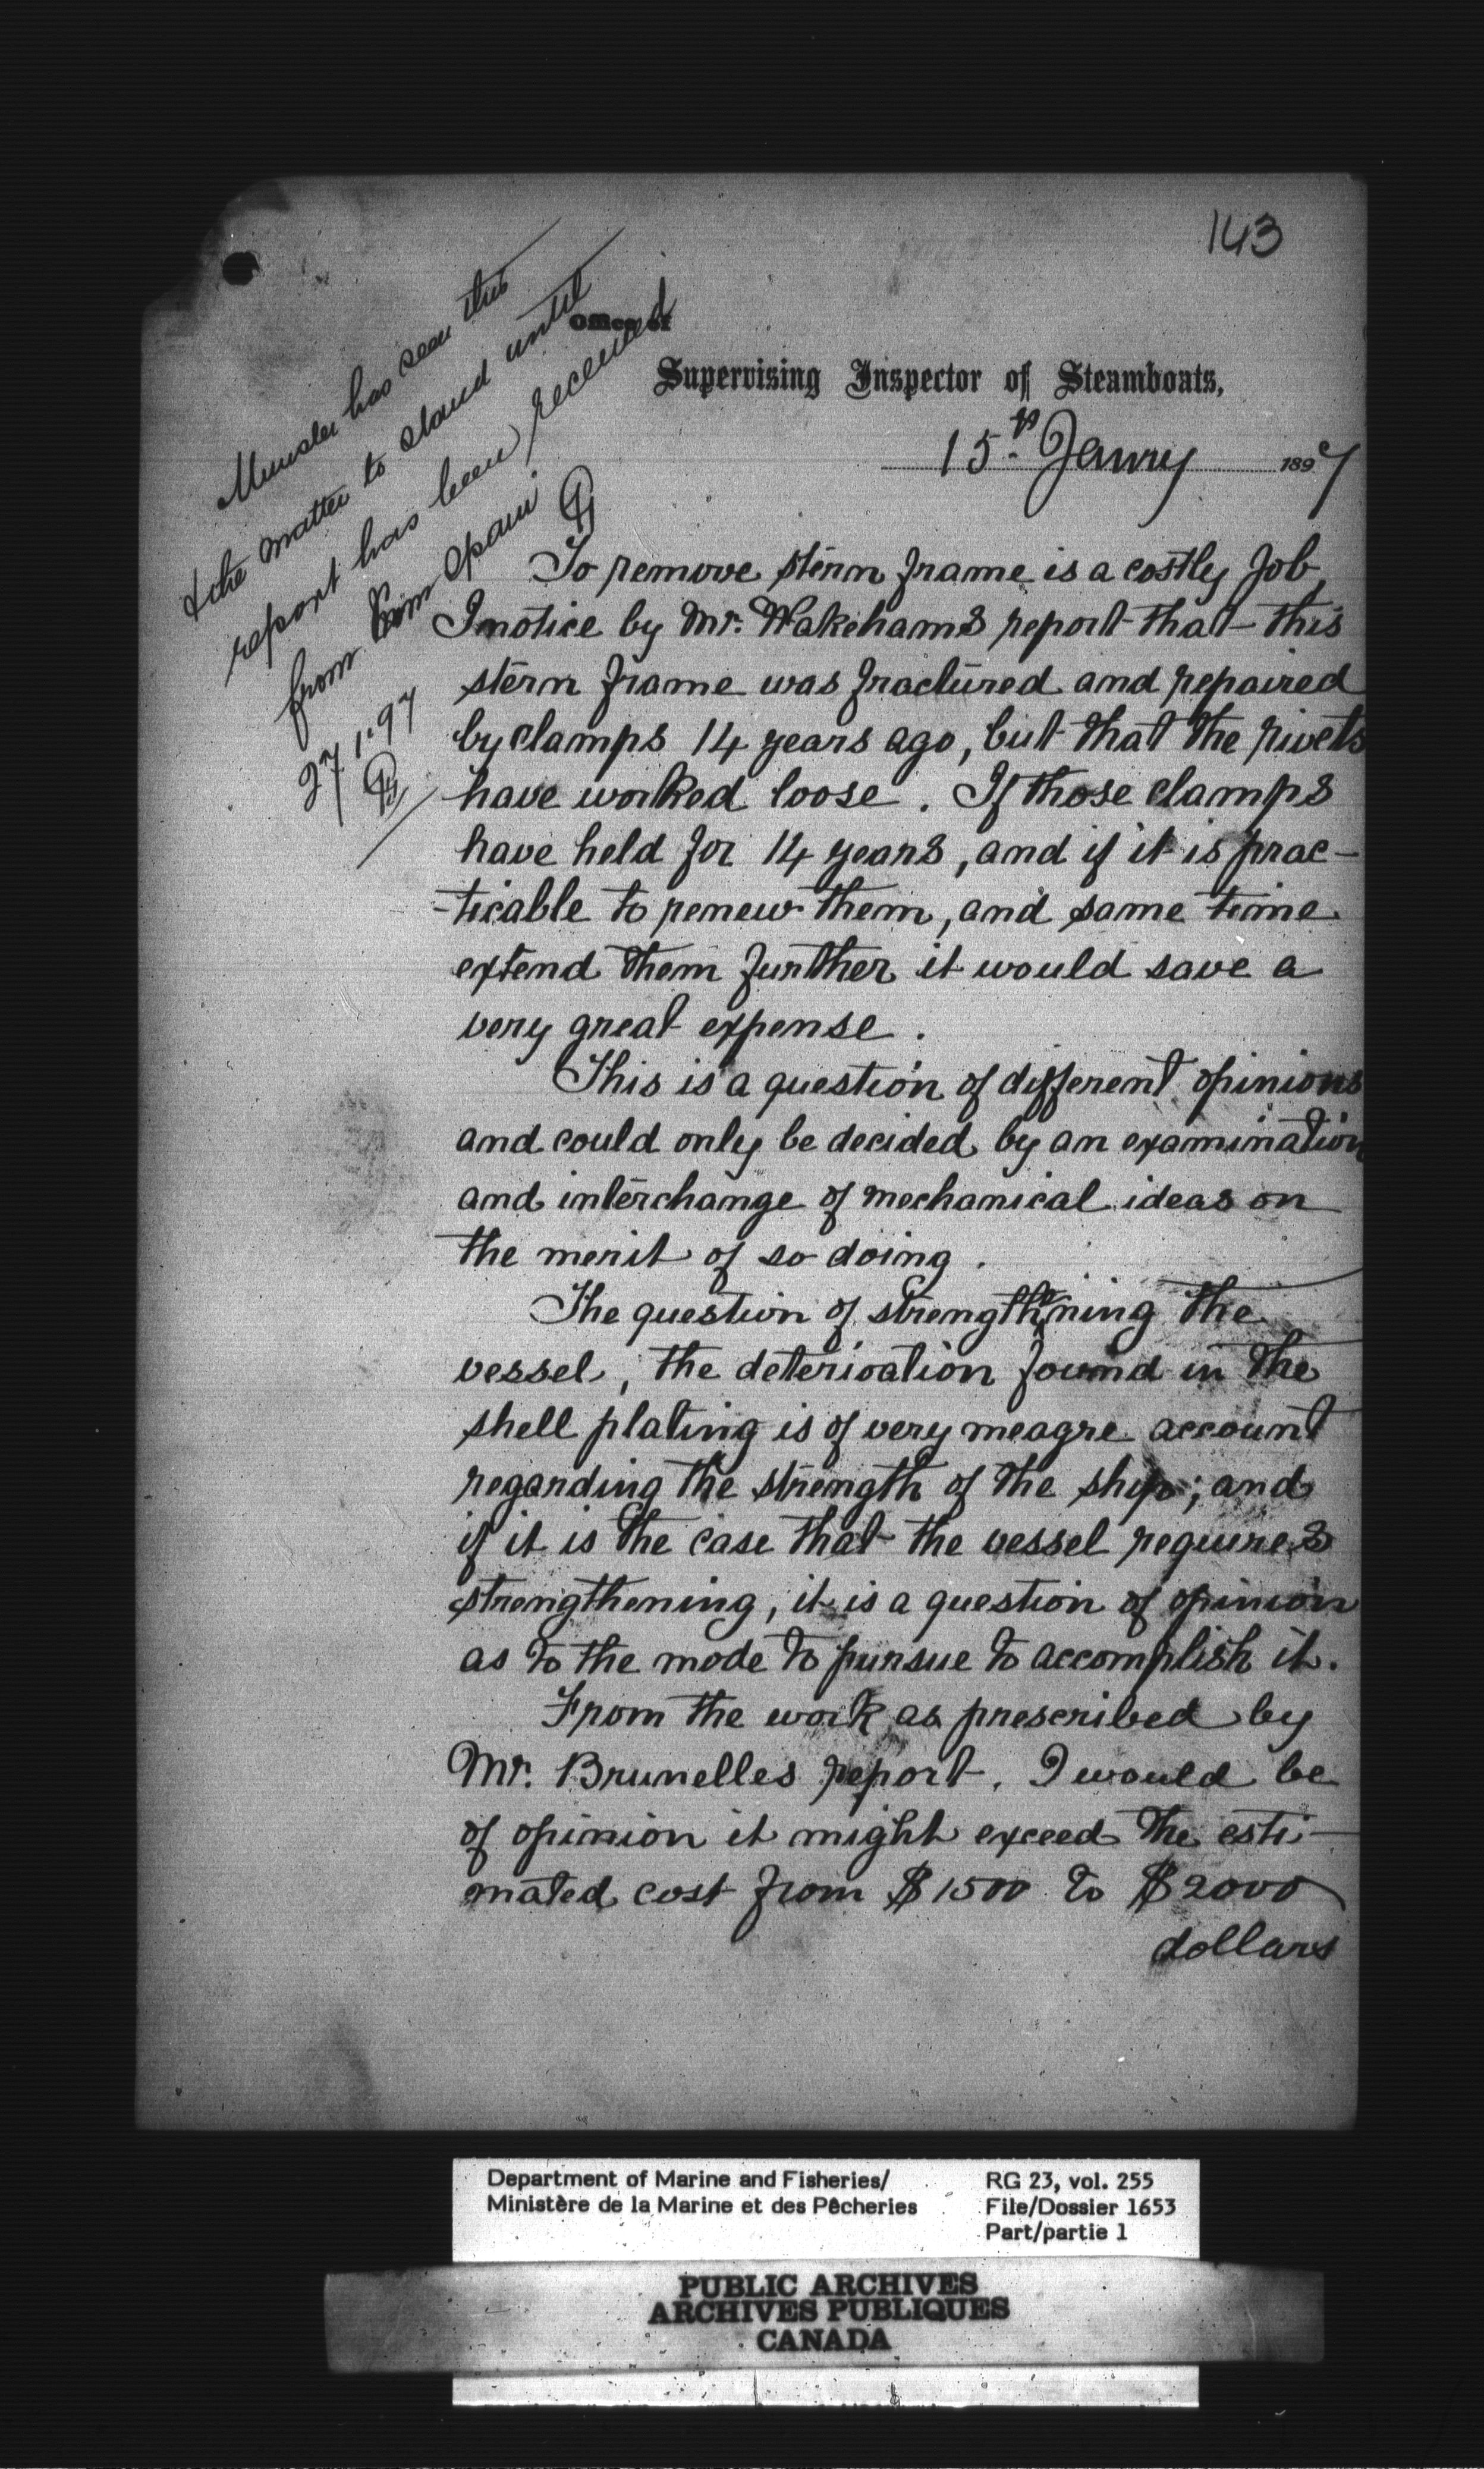 143
Minister has seen this
& the matter to stand until
report has been received
from Com Spain
27/1/97
Office of
Supervising Inspector of Steamboats,
15th Janry 1897
To remove stern frame is a costly job,
I notice by Mr. Wakehams report that this
stern frame was fractured and repaired
by clamps 14 years ago, but that the rivets
have worked loose. If those clamps
have held for 14 years, and if it is prac-
-ticable to renew them, and same time
extend them further it would save a
very great expense.
This is a question of different opinions
and could only be decided by an examination
and interchange of mechanical ideas on
the merit of so doing.
The question of strengthening the
vessel, the deterioation found in the
shell plating is of very meagre account
regarding the strength of the ship; and
if it is the case that the vessel requires
strengthening, it is a question of opinion
as to the mode to pursue to accomplish it.
From the work as prescribed by
Mr. Brunelles report. I would be
of opinion it might exceed the esti-
mated cost from $1500 to $2000
dollars
Department of Marine and Fisheries/
Ministère de la Marine et des Pêcheries
RG 23, vol. 255
File/Dossier 1653
Part/partie 1
PUBLIC ARCHIVES
ARCHIVES PUBLIQUES
CANADA